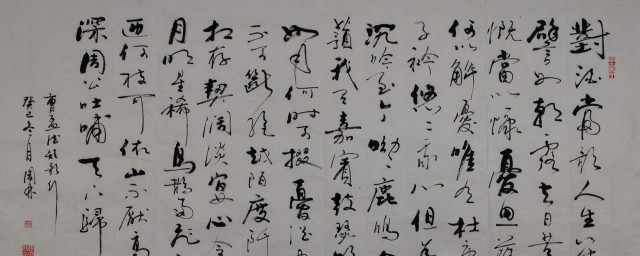 對酒當歌人生幾
譬如朝露去日苦
慨當以慷憂思難
何以解憂唯有杜康
子衿悠悠我心但為
沉吟至今呦呦鹿鳴食
蘋我有嘉賓鼓瑟吹
如月何時可掇憂從
不可斷絕越陌度阡
枉存契闊談宴心念
月明星稀烏鵲南飛
匝何枝可依山不厭高
深周公吐哺天下歸
曹孟德短歌行
癸巳冬月周